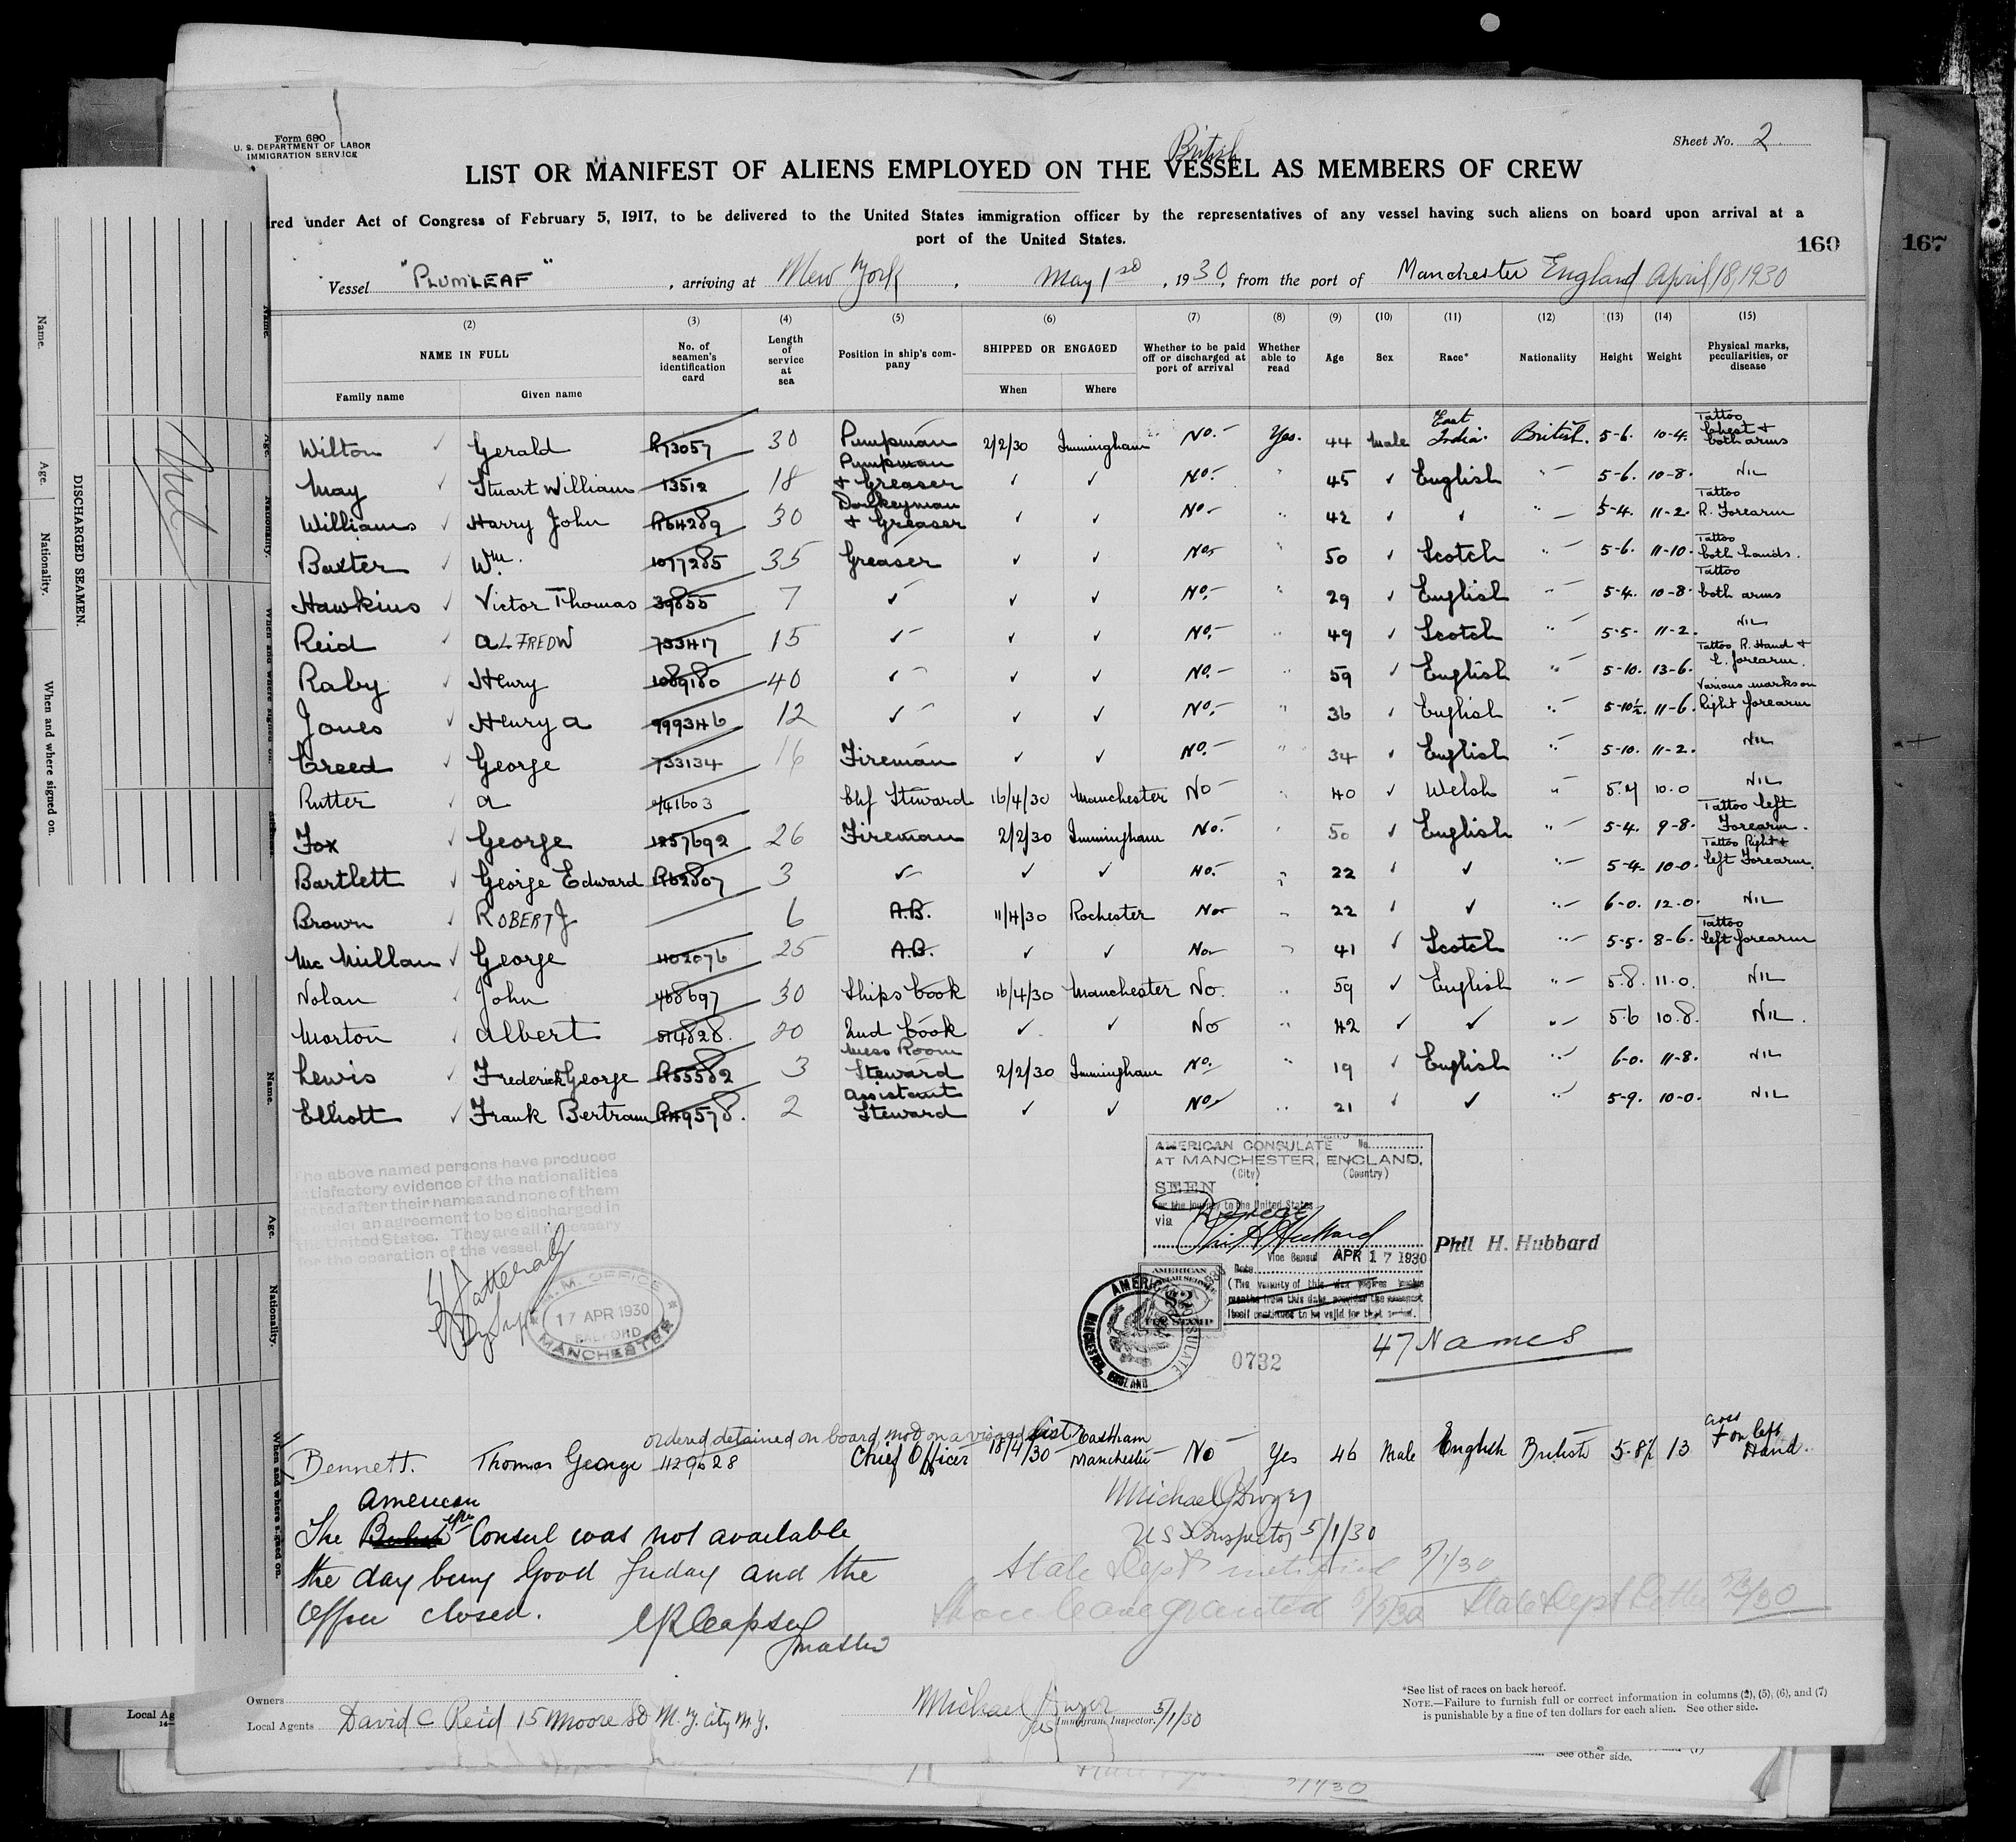 Form 680
U. S. DEPARTMENT OF LABOR
IMMIGRATION SERVICE
Sheet No. 2
British
LIST OR MANIFEST OF ALIENS EMPLOYED ON THE VESSEL AS MEMBERS OF CREW
red under Act of Congress of February 5, 1917, to be delivered to the United States immigration officer by the representatives of any vessel having such aliens on board upon arrival at a
port of the United States.
160
167
Vessel "PLUMLEAF", arriving at New York, May 1st, 1930, from the port of Manchester England April 18, 1930
(2) (3) (4) (5) (6) (7) (8) (9) (10) (11) (12) (13) (14) (15)
NAME IN FULL
Family name Given name
No. of seamen's identification card
Length of service at sea
Position in ship's company
SHIPPED OR ENGAGED
When Where
Whether to be paid off or discharged at port of arrival
Whether able to read
Age Sex Race* Nationality Height Weight
Physical marks, peculiarities, or disease
Wilton ✓ Gerald R73057 30 Pumpman 2/2/30 Immingham No. Yes. 44 Male East India British. 5-6. 10-4. Tattoo Chest + both arms
May ✓ Stuart William 13512 18 Pumpman + Greaser ✓ ✓ No. " 45 ✓ English " 5-6. 10-8. NIL
Williams ✓ Harry John R64289 30 Donkeyman + Greaser ✓ ✓ No " 42 ✓ ✓ " 5-4. 11-2. Tattoo R. Forearm
Baxter ✓ Wm. 1077285 35 Greaser ✓ ✓ No " 50 ✓ Scotch " 5-6. 11-10. Tattoo both hands.
Hawkins ✓ Victor Thomas 39855 7 ✓ ✓ ✓ No. " 29 ✓ English " 5-4. 10-8. Tattoo both arms
Reid ✓ ALFRED W 733417 15 ✓ ✓ ✓ No. " 49 ✓ Scotch " 5-5. 11-2. NIL
Raby ✓ Henry 1089180 40 ✓ ✓ ✓ No. " 59 ✓ English " 5-10. 13-6. Tattoo R. Hand + L. forearm.
Jones ✓ Henry A 999346 12 ✓ ✓ ✓ No. " 36 ✓ English " 5-10½. 11-6. Various marks on Right forearm
Creed ✓ George 733134 16 Fireman ✓ ✓ No. " 34 ✓ English " 5-10. 11-2. NIL
Rutter ✓ A 941603 Chf Steward 16/4/30 Manchester No " 40 ✓ Welsh " 5.4 10.0 NIL
Fox ✓ George 1257692 26 Fireman 2/2/30 Immingham No. " 50 ✓ English " 5-4. 9-8. Tattoo left Forearm.
Bartlett ✓ George Edward R62807 3 ✓ ✓ ✓ No. " 22 ✓ ✓ " 5-4. 10-0. Tattoo Right + left Forearm.
Brown ✓ ROBERT J 6 A.B. 11/4/30 Rochester No " 22 ✓ ✓ " 6-0. 12.0. NIL
McMillan ✓ George 1102076 25 A.B. ✓ ✓ No " 41 ✓ Scotch " 5-5. 8-6. Tattoo left forearm
Nolan ✓ John 468697 30 Ships Cook 16/4/30 Manchester No. " 59 ✓ English " 5.8. 11.0. NIL
Morton ✓ Albert 514828. 20 2nd Cook ✓ ✓ No " 42 ✓ ✓ " 5.6 10.8. NIL.
Lewis ✓ Frederick George R55582 3 Mess Room Steward 2/2/30 Immingham No. " 19 ✓ English " 6-0. 11-8. NIL
Elliott ✓ Frank Bertram R49578. 2 Assistant Steward ✓ ✓ No " 21 ✓ ✓ " 5-9. 10-0. NIL
The above named persons have produced
satisfactory evidence of the nationalities
stated after their names and none of them
is under an agreement to be discharged in
the United States. They are all necessary
for the operation of the vessel.
M.M. OFFICE
17 APR 1930
SALFORD
MANCHESTER
AMERICAN CONSULATE No.
AT MANCHESTER, ENGLAND.
(City) (Country)
SEEN
For the journey to the United States
via Direct
Phil H Hubbard
Vice Consul APR 17 1930
Date
(The validity of this visa expires twelve
months from this date provided the passport
itself continues to be valid for that period.
Phil H. Hubbard
AMERICAN
$2
FEE STAMP
AMERICAN CONSULATE
MANCHESTER, ENGLAND
0732
47 Names
ordered detained on board not on a visaed list
Bennett. Thomas George 1129628 Chief Officer 18/4/30 Eastham Manchester No Yes 46 Male English British 5-8½ 13 Cross + on left Hand.
The American Consul was not available
the day being Good Friday and the
Office closed.
Master
Michael J Dwyer
US Inspector 5/1/30
State Dept notified 5/1/30
Shore leave granted 5/5/30 State Dept Letter 5/3/30
Owners
Local Agents David C Reid 15 Moore St N.Y. City N.Y.
Michael J Dwyer
US Immigrant Inspector. 5/1/30
*See list of races on back hereof.
NOTE.—Failure to furnish full or correct information in columns (2), (5), (6), and (7)
is punishable by a fine of ten dollars for each alien. See other side.
See other side.
DISCHARGED SEAMEN.
Name. Age. Nationality. When and where signed on.
Nil
Name. Age. Nationality. When and where signed on.
Local Ag